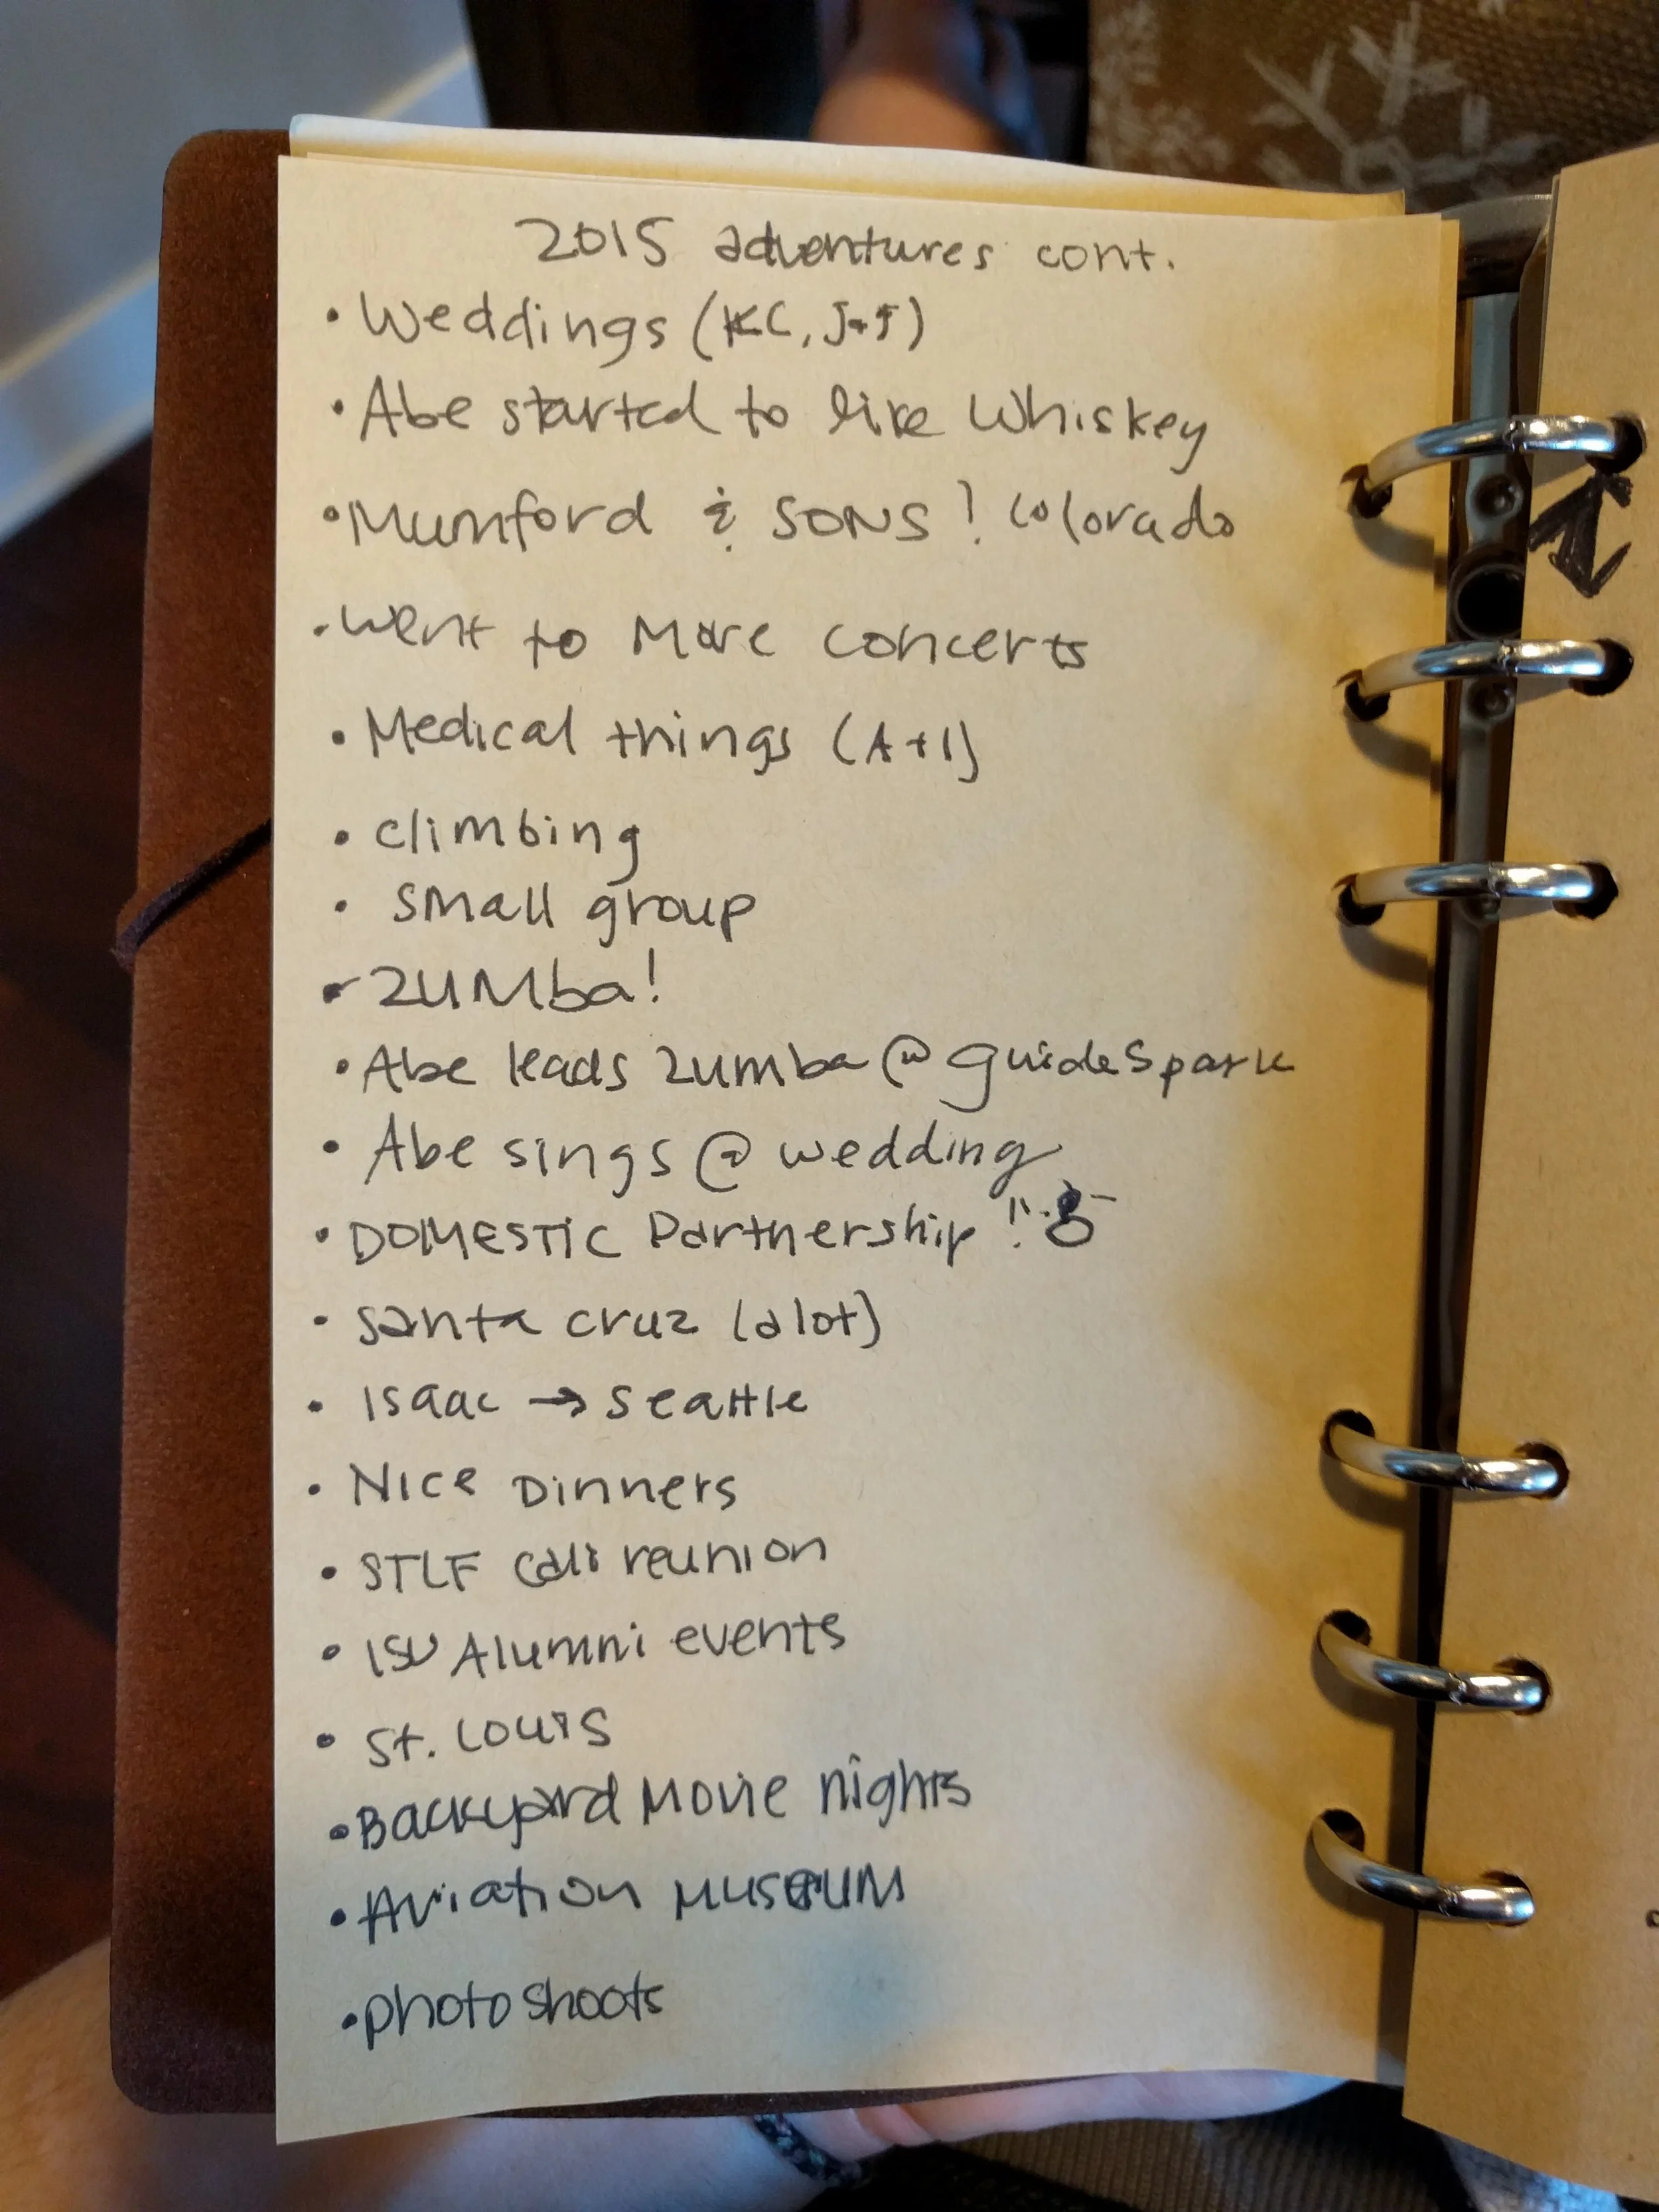 2015 adventures cont.
• Weddings (KC, J+J)
• Abe started to like Whiskey
• Mumford & SONS! Colorado
• Went to More concerts
• Medical things (A+I)
• climbing
• small group
• ZUMba!
• Abe leads zumba @ guideSpark
• Abe sings @ wedding
• DOMESTIC Partnership !!
• santa cruz (alot)
• Isaac → seattle
• NICE DINNERS
• STLF cali reunion
• ISU Alumni events
• St. LOUIS
• Backyard Movie nights
• Aviation MUSEUM
• photoshoots